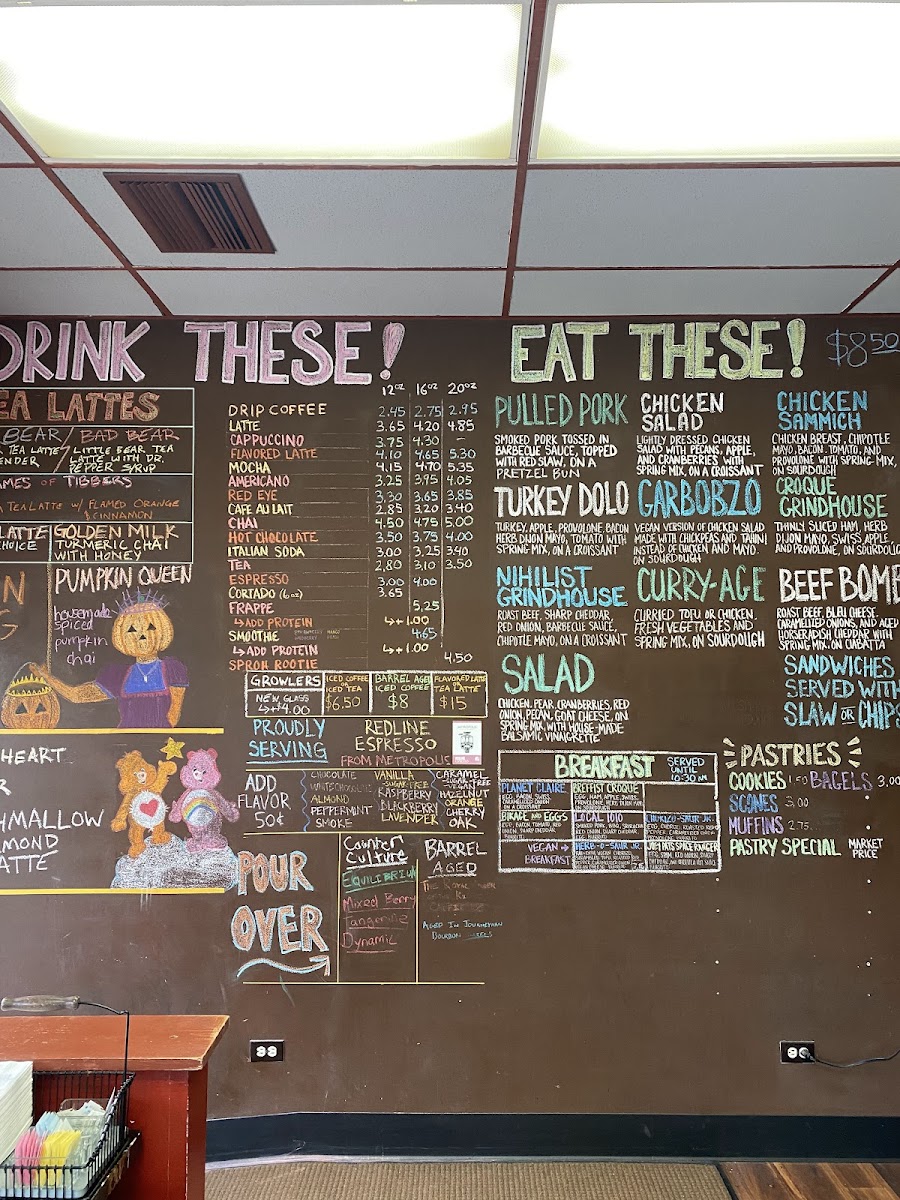 DRINK THESE!
EA LATTES
BEAR / BAD BEAR
TEA LATTE / LITTLE BEAR TEA
ENDER / LATTE WITH DR.
PEPPER SYRUP
AMES OF TIBBERS
TEA LATTE W/ FLAMED ORANGE
& CINNAMON
LATTE
HOICE
GOLDEN MILK
TURMERIC CHAI
WITH HONEY
PUMPKIN QUEEN
housemade
spiced
pumpkin
chai
HEART
MALLOW
MOND
ATTE
12oz 16oz 20oz
DRIP COFFEE 2.45 2.75 2.95
LATTE 3.65 4.20 4.85
CAPPUCCINO 3.75 4.30 -
FLAVORED LATTE 4.10 4.65 5.30
MOCHA 4.15 4.70 5.35
AMERICANO 3.25 3.95 4.05
RED EYE 3.30 3.65 3.85
CAFE AU LAIT 2.85 3.20 3.40
CHAI 4.50 4.75 5.00
HOT CHOCOLATE 3.50 3.75 4.00
ITALIAN SODA 3.00 3.25 3.40
TEA 2.80 3.10 3.50
ESPRESSO 3.00 4.00
CORTADO (6oz) 3.65
FRAPPE 5.25
→ADD PROTEIN +1.00
SMOOTHIE 4.65
→ADD PROTEIN +1.00
SPROH ROOTIE 4.50
GROWLERS
NEW GLASS
+4.00
ICED COFFEE
ICED TEA
$6.50
BARREL AGED
ICED COFFEE
$8
FLAVORED LATTE
TEA LATTE
$15
PROUDLY
SERVING
REDLINE
ESPRESSO
FROM METROPOLIS
ADD
FLAVOR
50¢
CHOCOLATE
WHITE CHOCOLATE
ALMOND
PEPPERMINT
SMOKE
VANILLA
SUGAR-FREE
RASPBERRY
BLACKBERRY
LAVENDER
CARAMEL
SUGAR-FREE
HAZELNUT
ORANGE
CHERRY
OAK
POUR
OVER
Counter
Culture
EQUILIBRIUM
Mixed Berry
Tangerine
Dynamic
BARREL
AGED
AGED IN JOURNEYMAN
BOURBON
EAT THESE!
$8.50
PULLED PORK
SMOKED PORK TOSSED IN
BARBECUE SAUCE, TOPPED
WITH RED SLAW, ON A
PRETZEL BUN
CHICKEN
SALAD
LIGHTLY DRESSED CHICKEN
SALAD WITH PECANS, APPLE,
AND CRANBERRIES WITH
SPRING MIX, ON A CROISSANT
CHICKEN
SAMMICH
CHICKEN BREAST, CHIPOTLE
MAYO, BACON, TOMATO, AND
PROVOLONE WITH SPRING MIX,
ON SOURDOUGH
TURKEY DOLO
TURKEY, APPLE, PROVOLONE, BACON
HERB DIJON MAYO, TOMATO WITH
SPRING MIX, ON A CROISSANT
GARBOBZO
VEGAN VERSION OF CHICKEN SALAD
MADE WITH CHICKPEAS AND TAHINI
INSTEAD OF CHICKEN AND MAYO.
ON SOURDOUGH
CROQUE
GRINDHOUSE
THINLY SLICED HAM, HERB
DIJON MAYO, SWISS, APPLE
AND PROVOLONE, ON SOURDOUG
NIHILIST
GRINDHOUSE
ROAST BEEF, SHARP CHEDDAR,
RED ONION, BARBEQUE SAUCE,
CHIPOTLE MAYO, ON A CROISSANT
CURRY-AGE
CURRIED TOFU OR CHICKEN
FRESH VEGETABLES AND
SPRING MIX, ON SOURDOUGH
BEEF BOMB
ROAST BEEF, BLEU CHEESE,
CARAMELIZED ONIONS, AND AGED
HORSERADISH CHEDDAR WITH
SPRING MIX, ON CIABATTA
SALAD
CHICKEN, PEAR, CRANBERRIES, RED
ONION, PECAN, GOAT CHEESE, ON
SPRING MIX WITH HOUSE-MADE
BALSAMIC VINAIGRETTE
SANDWICHES
SERVED WITH
SLAW OR CHIPS
BREAKFAST
SERVED
UNTIL
10:30 AM
PLANET CLAIRE
EGG, BACON, SWISS,
CARAMELIZED ONION
ON A CROISSANT
BREFFIST CROQUE
EGG, HAM, APPLE, SWISS,
BIKACE AND EGGS
EGG, BACON, TOMATO, RED
ONION, SHARP CHEDDAR,
LOCAL 1010
CHORIZO-SAUR JR.
VEGAN →
BREAKFAST
HERB-O-SAUR JR.
JIM HA'S SPACE RANGER
PASTRIES
COOKIES 1.50 BAGELS 3.00
SCONES 3.00
MUFFINS 2.75
PASTRY SPECIAL MARKET
PRICE